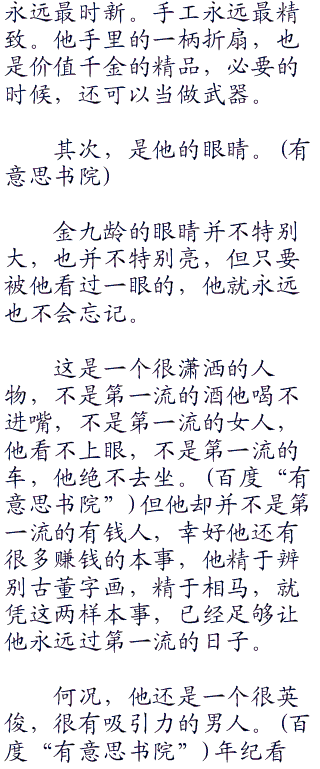 永远最时新。手工永远最精
致。他手里的一柄折扇，也
是价值千金的精品，必要的
时候，还可以当做武器。
其次，是他的眼睛。(有
意思书院)
金九龄的眼睛并不特别
大，也并不特别亮，但只要
被他看过一眼的，他就永远
也不会忘记。
这是一个很潇洒的人
物，不是第一流的酒他喝不
进嘴，不是第一流的女人，
他看不上眼，不是第一流的
车，他绝不去坐。(百度“有
意思书院”)但他却并不是第
一流的有钱人，幸好他还有
很多赚钱的本事，他精于辨
别古董字画，精于相马，就
凭这两样本事，已经足够让
他永远过第一流的日子。
何况，他还是一个很英
俊，很有吸引力的男人。(百
度“有意思书院”)年纪看